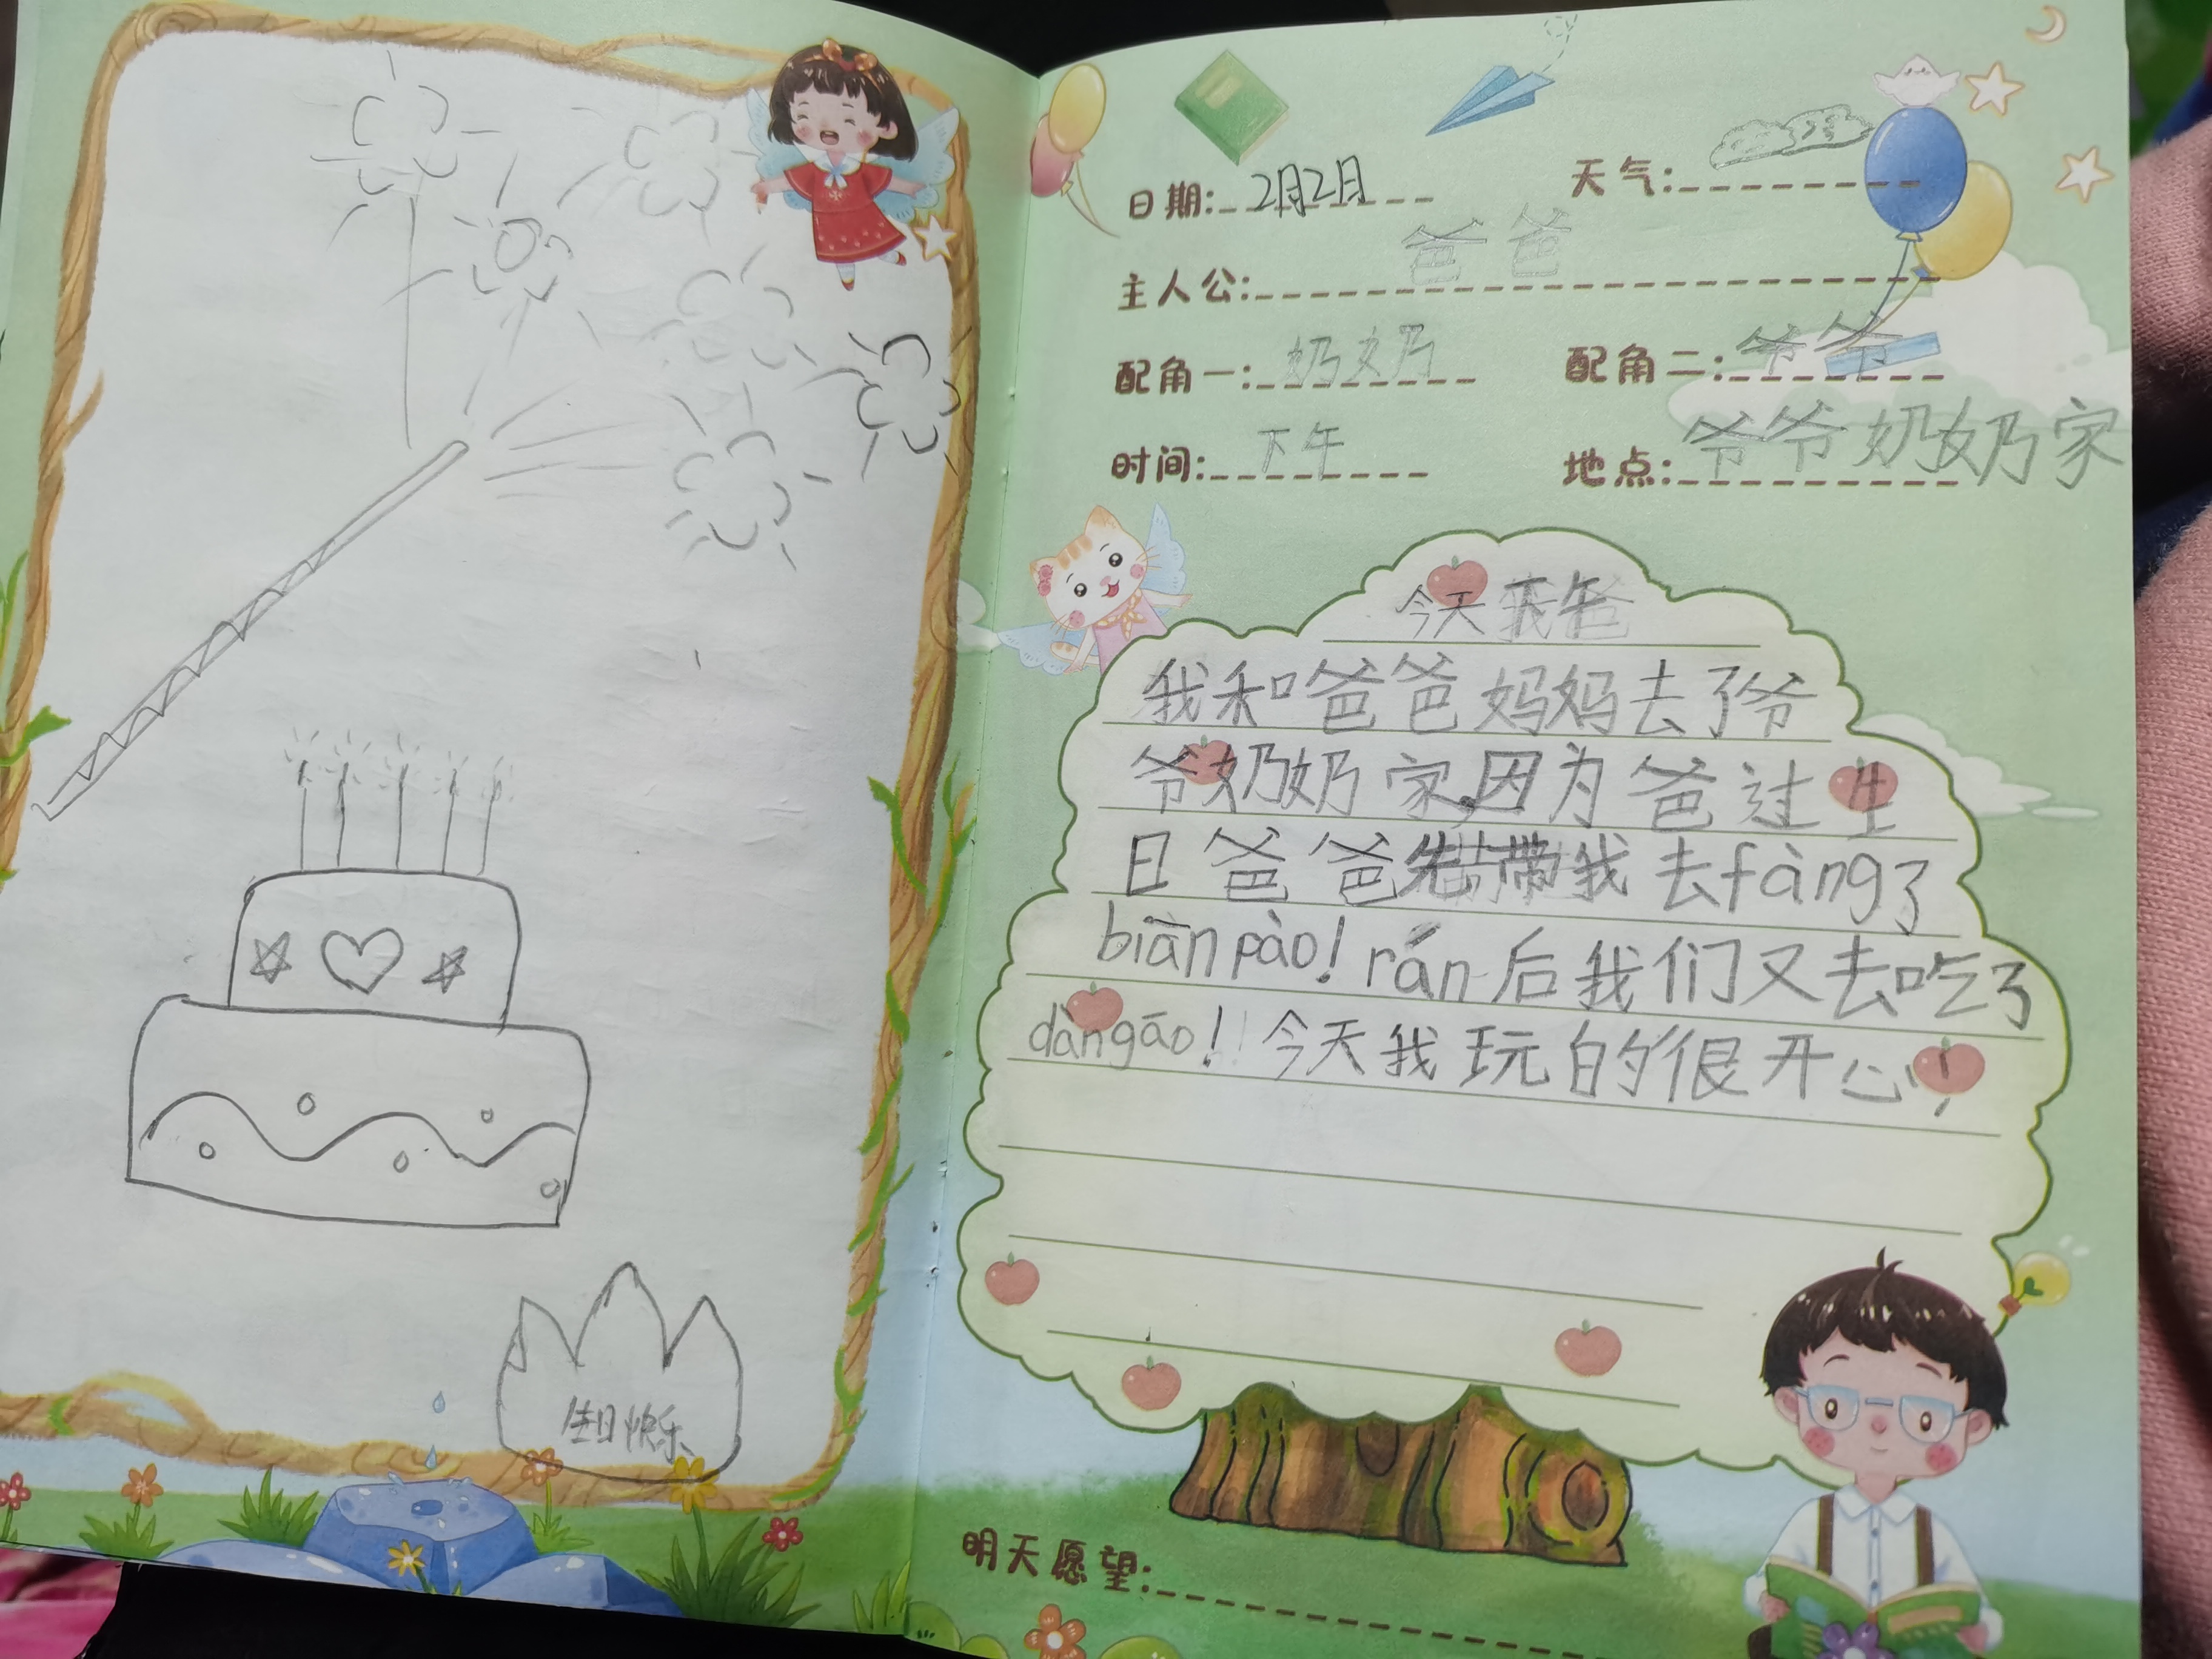 生日快乐
日期: 2月2月
天气:
主人公: 爸爸
配角一: 奶奶
配角二: 爷爷
时间: 下午
地点: 爷爷奶奶家
今天下午
我和爸爸妈妈去了爷
爷奶奶家,因为爸过生
日爸爸先带我去fàng了
biānpào! rán后我们又去吃了
dàngāo! 今天我玩的很开心!
明天愿望: